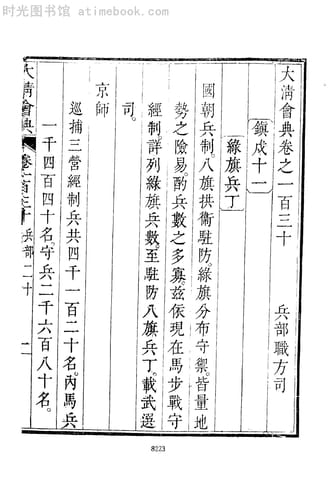 时光图书馆 · atimebook.com
大清會典卷之一百三十　兵部職方司
鎮戍十一
綠旗兵丁
國朝兵制。八旗拱衛駐防。綠旗分布守禦。皆量地
勢之險易。酌兵數之多寡。茲依現在馬步戰守
經制。詳列綠旗兵數。至駐防八旗兵丁。載武選
司。
京師
巡捕三營經制兵共四千一百二十名。內馬兵
一千四百四十名。守兵二千六百八十名。
大清會典　卷一百三十　兵部二十　一
8223